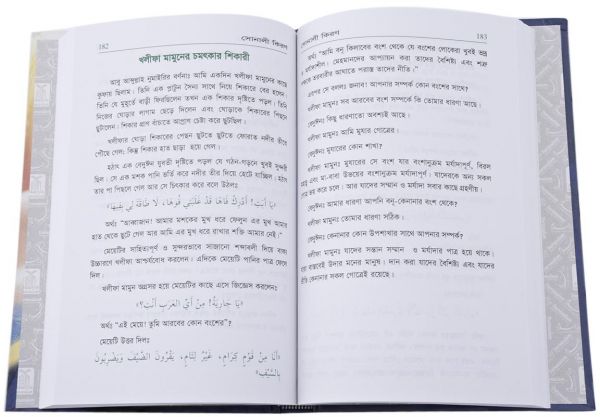 182
সোনালী কিরণ
খলীফা মামুনের চমৎকার শিকারী
আবু আব্দুল্লাহ নুমাইরির বর্ণনা। আমি একদিন খলীফা মামুনের কাছে
কুফায় ছিলাম। তিনি এক প্লাটুন সৈন্য সাথে নিয়ে শিকারে বের হলেন।
তিনি যে মুহূর্তে বাড়ী ফিরছিলেন তখন এক শিকার দৃষ্টিতে পড়ল। তিনি
নিজের ঘোড়ার লাগাম ছেড়ে দিলেন এবং ঘোড়াকে শিকারের পিছনে
ছুটালেন। শিকার প্রাণ বাঁচাতে আপ্রাণ চেষ্টা করে ছুটছিল।
খলীফার ঘোড়া শিকারের পেছন ছুটতে ছুটতে ফোরাত নদীর তীরে
পৌঁছে গেল; কিন্তু শিকার হাত ছাড়া হয়ে গেল।
হঠাৎ এক বেদুঈন যুবতী দৃষ্টিতে পড়ল যে গঠন-গড়নে খুবই সুন্দরী
ছিল। সে এক মশক পানি ভর্তি করে নদীর তীর দিয়ে হেটে যাচ্ছিল। হঠাৎ
তার পা পিছলে গেল আর সে চিৎকার করে বলে উঠলঃ
«يَا أَبَتِ! أَدْرِكْ فَاهَا قَدْ غَلَبَنِي فُوهَا، لَا طَاقَةَ لِي بِفِيهَا»
অর্থঃ "আব্বাজান! আমার মশকের মুখ ধরে ফেলুন এর মুখ আমার
হাত থেকে ছুটে গেল আর আমি এর মুখ ধরে রাখার শক্তি আমার নেই।"
মেয়েটির সাহিত্যপূর্ণ ও সুন্দরভাবে সাজানো শব্দাবলী দিয়ে বাক্য
উচ্চারণে খলীফা আশ্চর্যবোধ করলেন। এদিকে মেয়েটি পানির পাত্র ফেলে
দিল।
খলীফা মামুন অগ্রসর হয়ে মেয়েটির কাছে এসে জিজ্ঞেস করলেনঃ
«يَا جَارِيَةُ! مِنْ أَيِّ الْعَرَبِ أَنْتِ؟»
অর্থঃ "এই মেয়ে! তুমি আরবের কোন বংশের"?
মেয়েটি উত্তর দিলঃ
«أَنَا مِنْ قَوْمٍ كِرَامٍ، غَيْرِ لِئَامٍ، يَقْرُونَ الضَّيْفَ وَيَضْرِبُونَ
بِالسَّيْفِ»
সোনালী কিরণ
183
অর্থঃ "আমি বনু কিলাবের বংশ থেকে যে বংশের লোকেরা খুবই ভদ্র
মর্যাদাশীল। মেহমানদের আপ্যায়ন করা তাদের বৈশিষ্ট্য এবং শত্রু
তরবারীর আঘাতে পরাস্ত করা তাদের নীতি।"
এরপর সে বললঃ জনাব! আপনার সম্পর্ক কোন বংশের সাথে?
খলীফা মামুনঃ সব আরবের বংশ সম্পর্কে কি তোমার ধারণা আছে।
বেদুঈনঃ কিছু ধারণাতো অবশ্যই আছে।
খলীফা মামুনঃ আমি মুযার গোত্রের।
বেদুঈনঃ মুযারের কোন শাখা?
খলীফা মামুনঃ মুযারের সে বংশ যার বংশানুক্রম মর্যাদাপূর্ণ, বিরল
এবং মা-বাবা উভয়ের বংশানুক্রম মর্যাদাপূর্ণ। যাদেরকে অন্য সকল
ভয় করে চলে। আর যাদের সম্মান ও মর্যাদা সবার কাছে গ্রহণীয়।
বেদুঈনঃ আমার ধারণা আপনি বনু-কেনানার বংশ থেকে?
খলীফা মামুনঃ তোমার ধারণা সঠিক।
বেদুঈনঃ কেনানার কোন উপশাখার সাথে আপনার সম্পর্ক?
খলীফা মামুনঃ যাদের সন্তান সম্মান ও মর্যাদার পাত্র হয়ে থাকে।
বাস্তবেই উদার মনের মানুষ। দান করা যাদের বৈশিষ্ট্য এবং যাদের
কেনানার সকল গোত্রেই রয়েছে।